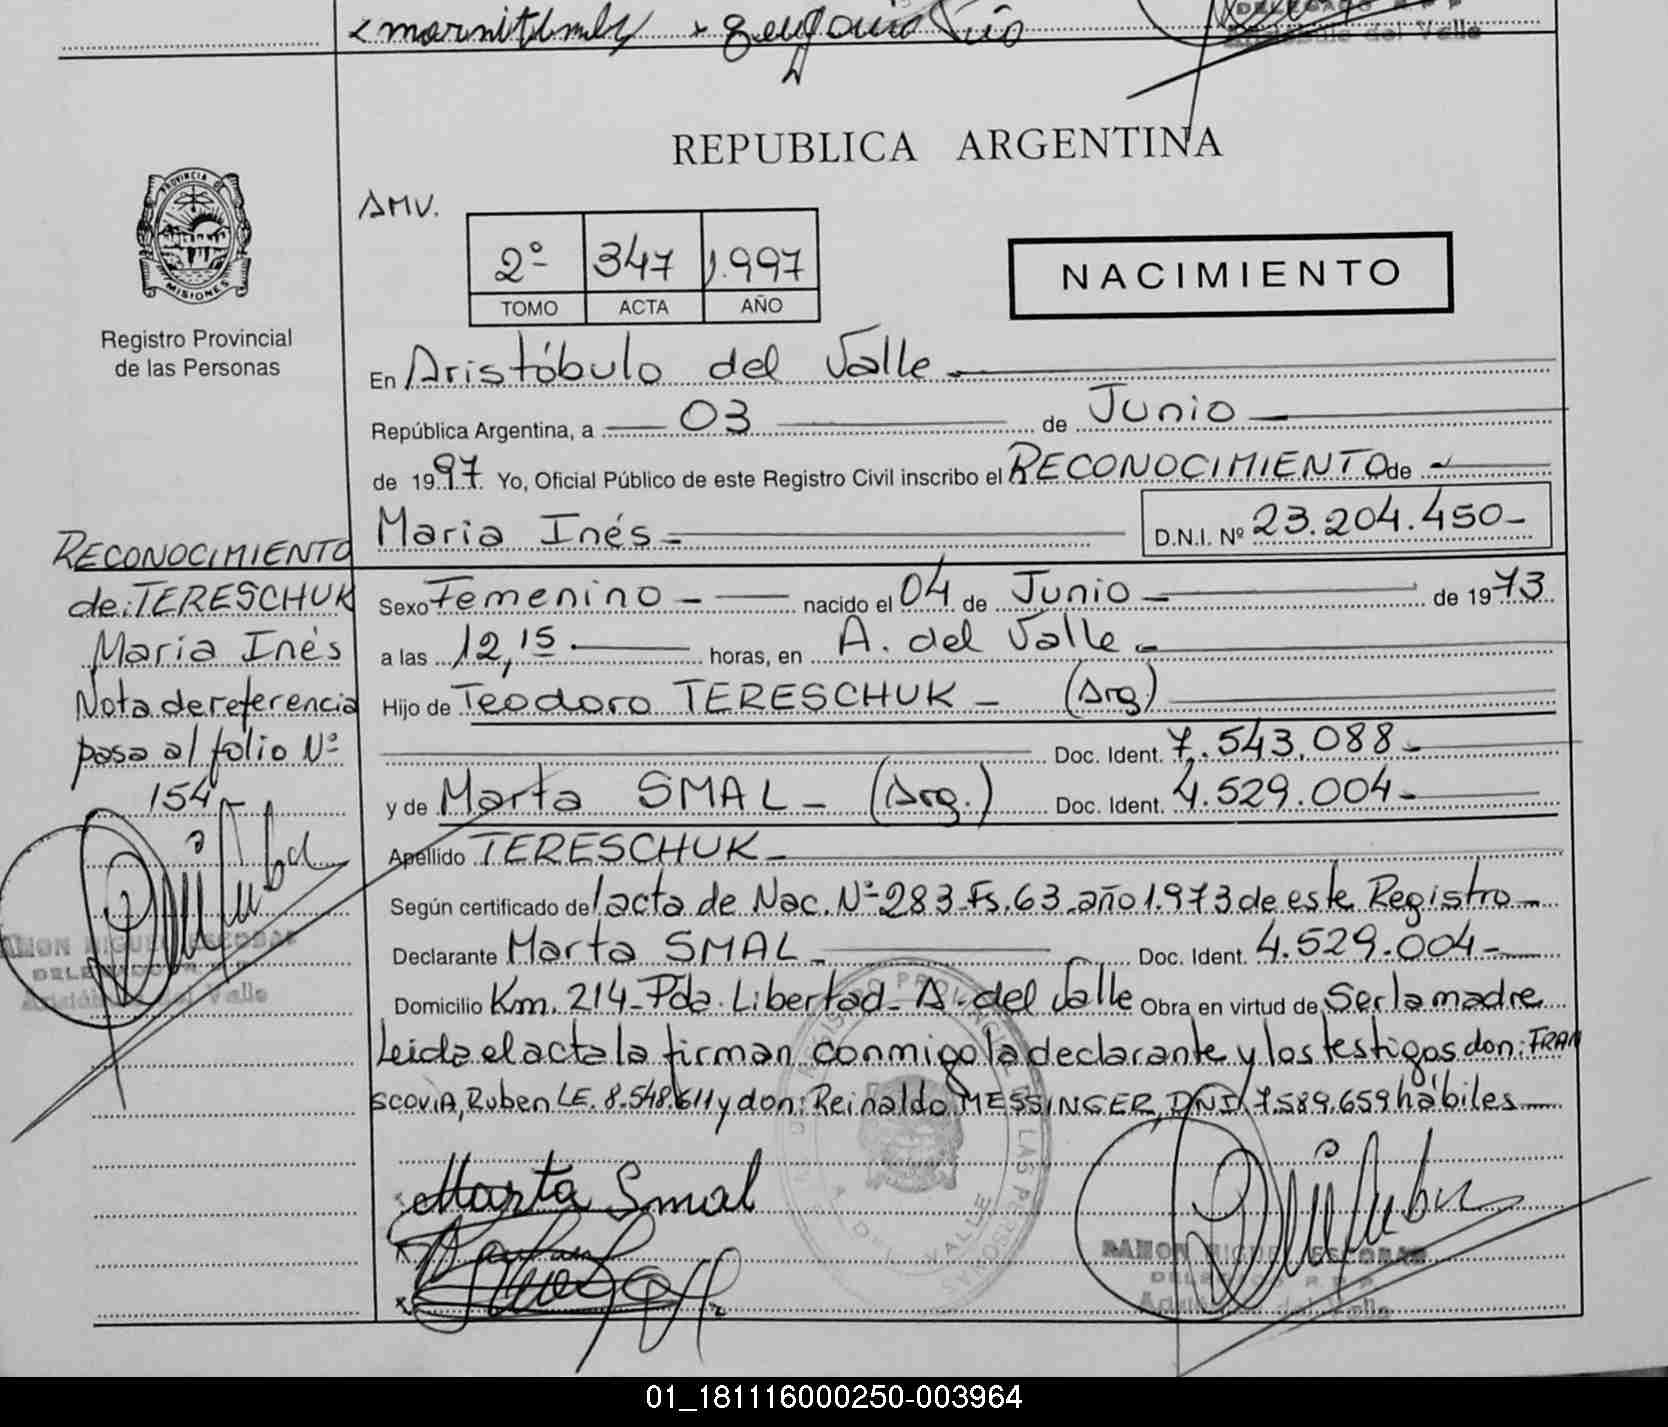 Aristóbulo del Valle
REPUBLICA ARGENTINA
PROVINCIA DE
MISIONES
Registro Provincial
de las Personas
AMV.
2º 347 1.997
TOMO ACTA AÑO
NACIMIENTO
En Aristóbulo del Valle
República Argentina, a 03 de Junio
de 1997. Yo, Oficial Público de este Registro Civil inscribo el RECONOCIMIENTO de
Maria Inés D.N.I. Nº 23.204.450
Sexo Femenino nacido el 04 de Junio de 1973
a las 12,15 horas, en A. del Valle
Hijo de Teodoro TERESCHUK (Arg)
Doc. Ident. 7.543.088
y de Marta SMAL (Arg.) Doc. Ident. 4.529.004
Apellido TERESCHUK
Según certificado de l acta de Nac. Nº 283 Fs. 63 año 1.973 de este Registro
Declarante Marta SMAL Doc. Ident. 4.529.004
Domicilio Km. 214 Pda. Libertad A. del Valle Obra en virtud de Ser la madre
Leida el acta la firman conmigo la declarante y los testigos don: FRAN
SCOVIA, Ruben LE. 8.548.611 y don: Reinaldo MESSINGER, DNI 7.589.659 hábiles
RECONOCIMIENTO
de: TERESCHUK
Maria Inés
Nota de referencia
pasa al folio Nº
154
RAMON MIGUEL ESCOBAR
DELEGADO R.P.P
Aristóbulo del Valle
Marta Smal
REGISTRO PROVINCIAL DE LAS PERSONAS
A. DEL VALLE
RAMON MIGUEL ESCOBAR
DELEGADO R.P.P
Aristóbulo del Valle
01_181116000250-003964